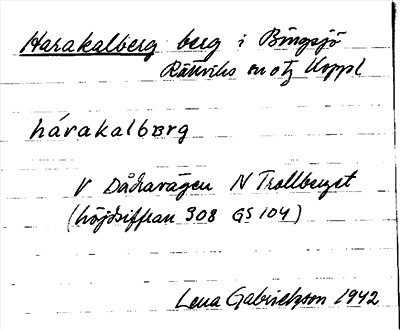 Harakalberg berg i Bingsjö
Rättviks sn o tg Koppl
hárakalbærg
V Dådravägen N Trollberget
(höjdsiffran 308 GS 104)
Lena Gabrielsson 1942